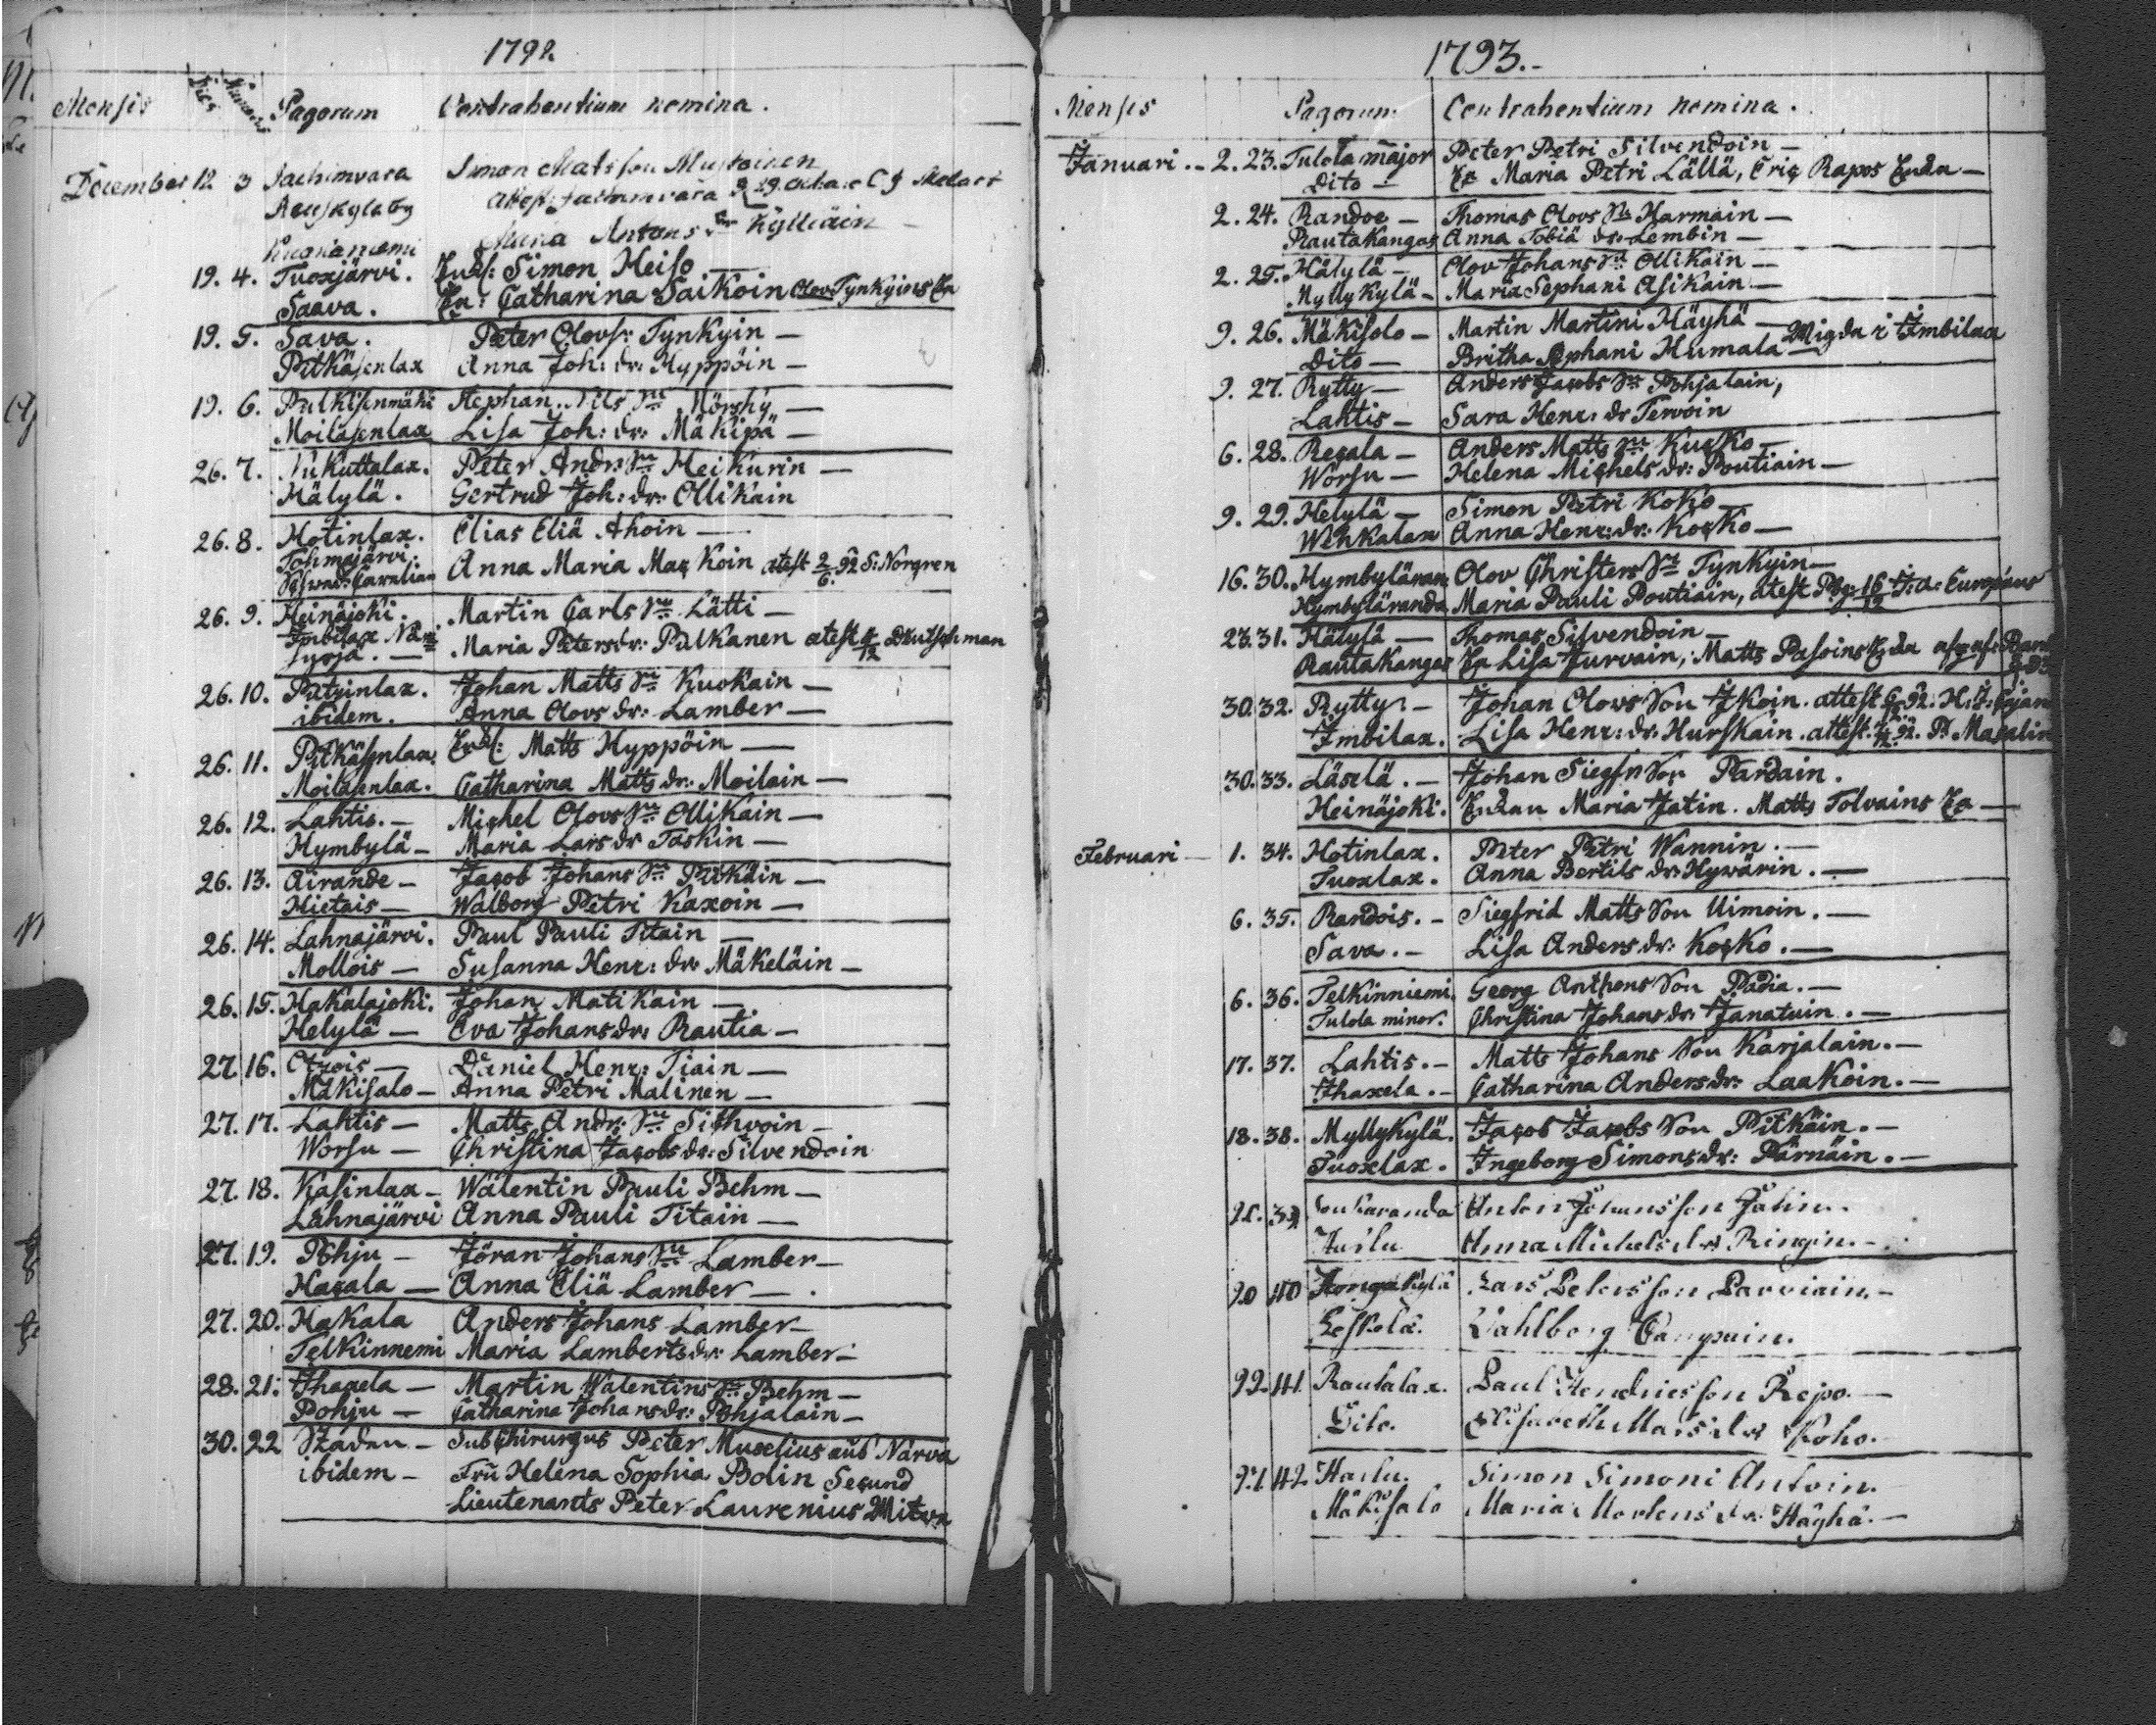 1792.
Mensis Dies Numerus Pagorum Contrahentium nomina.
December 12. 3 Jachimvara Simon Matsson Mustoinen
Kuskylaby
Anna Antons dr Kylliäin
19. 4. Tuoxjärvi. Enkl: Simon Heiso
Saava. Ea: Catharina Saikoin Olov Tynkyins Ea
19. 5. Sava. Peter Olovs: Tynkyin —
Pitkäsenlax Anna Joh: dr: Hyppöin —
19. 6. Pulkisenmäki Stephan Nils Sn Mörsky —
Moilasenlax Lisa Joh: dr: Mäkipä —
26. 7. Nukuttalax. Peter Andr Sn Heikurin —
Hälylä. Gertrud Joh: dr: Ollikain
26. 8. Hotinlax. Elias Eliä Ahoin —
Tohmajärvi. Anna Maria Mackoin atest 2/6 92 S: Norgren
26. 9. Heinäjoki. Martin Carls Sn Lätti —
Imbilax Maria Peters dr: Pulkanen atest 4/12 Deutschman
Syrjä. —
26. 10. Pötyinlax. Johan Matts Sn Kuokain —
ibidem. Anna Olovs dr: Lamber —
26. 11. Pitkäsenlax. Enkl: Matts Hyppöin —
Moilasenlax. Catharina Matts dr: Moilain —
26. 12. Lahtis. — Michel Olovs Sn Ollikain —
Hymbylä — Maria Lars dr Taskin —
26. 13. Airande — Jacob Johans Sn Pitkäin —
Hietais — Walborg Petri Kaxoin —
26. 14. Lahnajärvi. Paul Pauli Titain —
Mollois — Susanna Henr: dr: Mäkeläin —
26. 15. Hakalajoki. Johan Matikain —
Helylä — Eva Johans dr: Rautia —
27. 16. Otzois — Daniel Henr: Tiain —
Mäkisalo — Anna Petri Malinen —
27. 17. Lahtis — Matts Andr: Sn Sithvoin —
Worsu — Christina Jacobs dr: Silvendoin
27. 18. Kasinlax — Walentin Pauli Behm —
Lahnajärvi Anna Pauli Titain —
27. 19. Pohju — Jöran Johans Sn Lamber —
Hacala — Anna Eliä Lamber —
27. 20. Hakala Anders Johans Lamber —
Telkinnemi Maria Lamberts dr: Lamber —
28. 21. Ihaxela — Martin Walentins Sn Behm —
Pohju — Catharina Johans dr: Pohjalain —
30. 22 Staden — Subchirurgus Peter Muselius aus Narva
ibidem — Fru Helena Sophia Bolin Secund
Lieutenants Peter Laurenius
1793. —
Mensis Pagorum Contrahentium nomina.
Januari. — 2. 23. Tulola major Peter Petri Silvendoin —
Dito — Ea Maria Petri Lällä, Eric Rapos Enka —
2. 24. Randoe — Thomas Olovs Sn Harmain —
Rautakangas Anna Tobiä dr: Lembin —
2. 25. Hälylä — Olov Johans Sn Ollikain —
Myllykylä — Maria Stephani Asikain —
9. 26. Mäkisolo — Martin Martini Häyhä —
Dito — Britha Stephani Humala — Migda i Imbilax
9. 27. Rytty — Anders Jacobs Sn Pohjalain,
Lahtis — Sara Henr: dr Tervoin
6. 28. Recala — Anders Matts Sn Kucko —
Worsu — Helena Michels dr: Poutiain —
9. 29. Helylä — Simon Petri Koko —
Wehkalax Anna Henr: dr: Kocko —
16. 30. Hymbyläranda Olov Christers Sn Tynkyin —
Hymbyläranda Maria Pauli Poutiain, atest 16/12 J: a: Europæus
23. 31. Hälylä — Thomas Silvendoin —
Rautakangas Ea Lisa Jurvain, Matts Pasoins Enka
30. 32. Rytty. — Johan Olovs Son Ikoin. attest 92. H: J:
Imbilax. Lisa Henr: dr: Hurskain. attest. 92. P. Masalin
30. 33. Läskelä. — Johan Siegfr Son Pardain.
Heinäjoki. Enkan Maria Jatin. Matts Tolvains Ea —
Februari — 1. 34. Hotinlax. Peter Petri Wannin. —
Tuoxlax. Anna Bertils dr: Hyvärin. —
6. 35. Randois. — Siegfrid Matts Son Uimoin. —
Sava. — Lisa Anders dr: Kocko. —
6. 36. Telkinniemi. Georg Anthons Son Padia. —
Tulola minor. Christina Johans dr: Janatuin. —
17. 37. Lahtis. — Matts Johans Son Karjalain. —
Ihaxela. — Catharina Anders dr: Laakoin. —
18. 38. Myllykylä. Jacob Jacobs Son Pitkäin. —
Tuoxlax. Ingeborg Simons dr: Pärnäin. —
39 Anton Johansson Jatin. —
Anna Michels dr: Ringin. —
20 40 Kongakylä Lars Petersson Parviain. —
Leskelä. Wahlborg
22. 41. Rautalax. Paul Hendricsson Repo. —
Dito. Elisabeth Mats dr: Koho. —
42. Simon Simoni Antoin.
Mäkisalo Maria Mortens dr: Häyhä. —